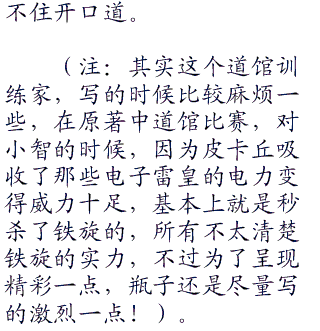 不住开口道。
（注：其实这个道馆训
练家，写的时候比较麻烦一
些，在原著中道馆比赛，对
小智的时候，因为皮卡丘吸
收了那些电子雷皇的电力变
得威力十足，基本上就是秒
杀了铁旋的，所有不太清楚
铁旋的实力，不过为了呈现
精彩一点，瓶子还是尽量写
的激烈一点！）。